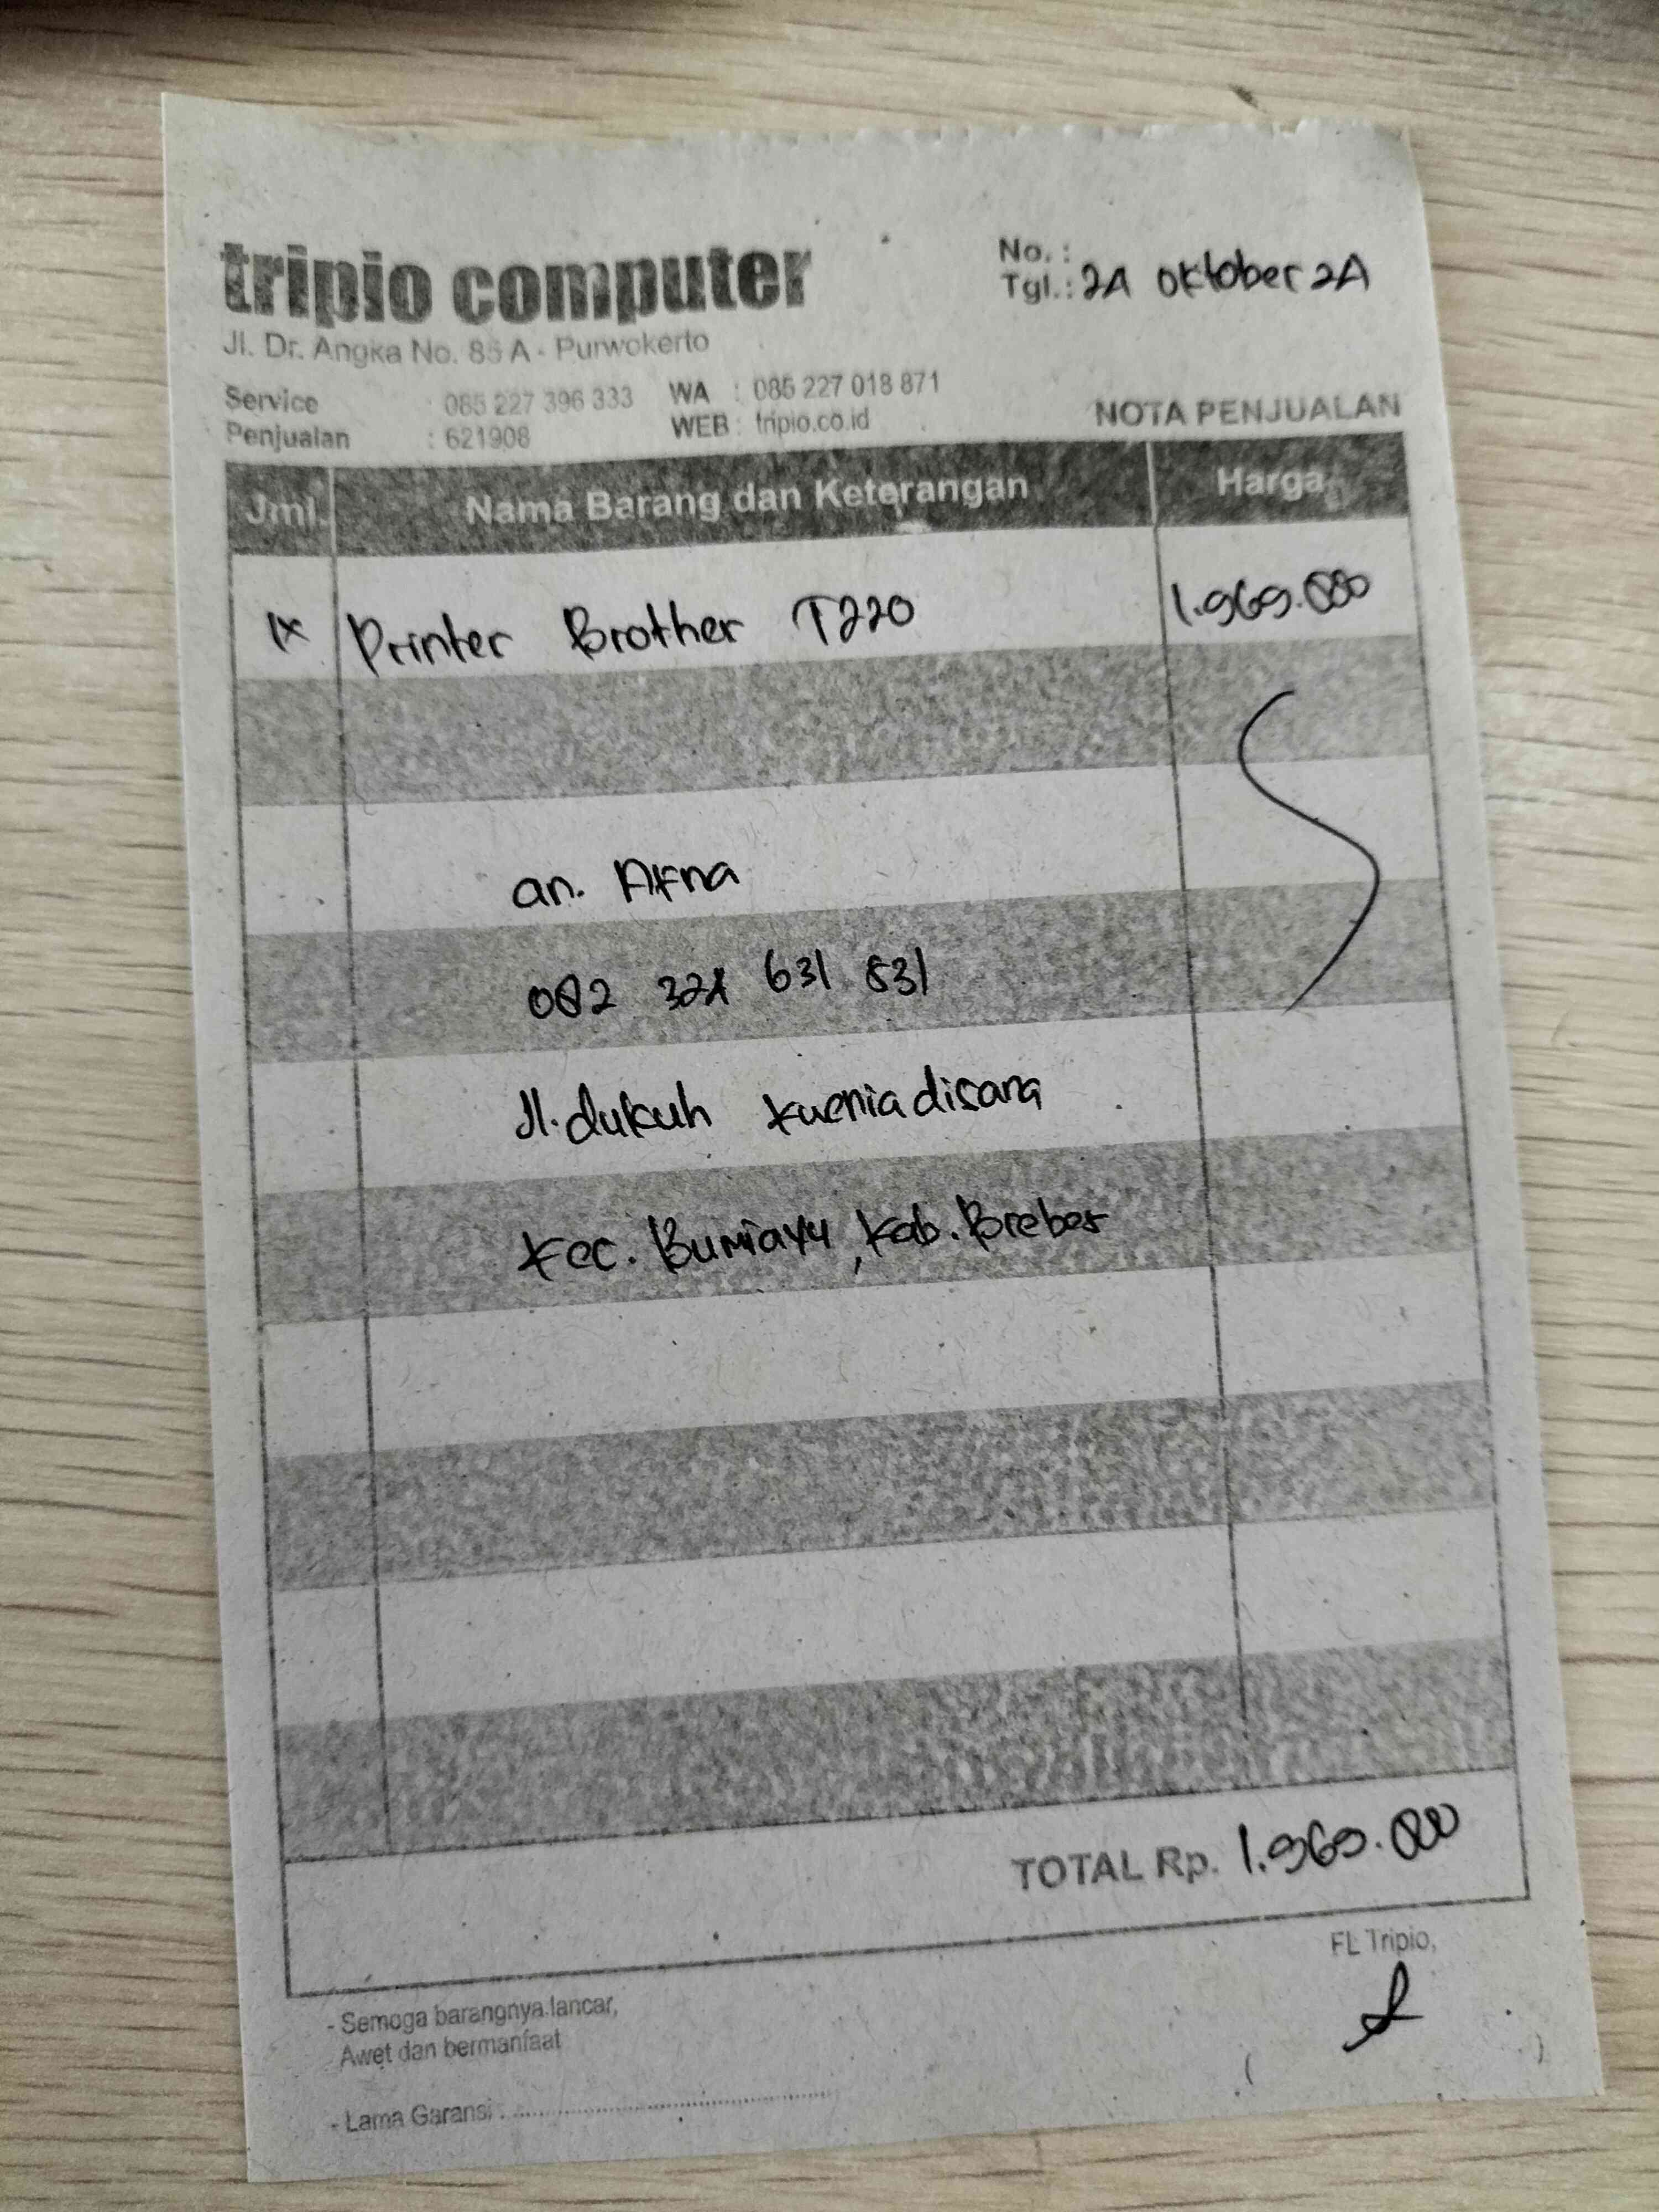 tripio computer
Jl. Dr. Angka No. 85 A - Purwokerto
No. :
Tgl. : 24 Oktober 24
Service : 085 227 396 333 WA : 085 227 018 871
Penjualan : 621908 WEB : tripio.co.id
NOTA PENJUALAN
Jml. Nama Barang dan Keterangan Harga
1x Printer Brother T220 1.969.000
an. Afna
082 324 631 831
Jl. dukuh kurnia disana
kec. Bumiayu, kab. Brebes
TOTAL Rp. 1.969.000
FL Tripio,
- Semoga barangnya lancar,
Awet dan bermanfaat
- Lama Garansi :